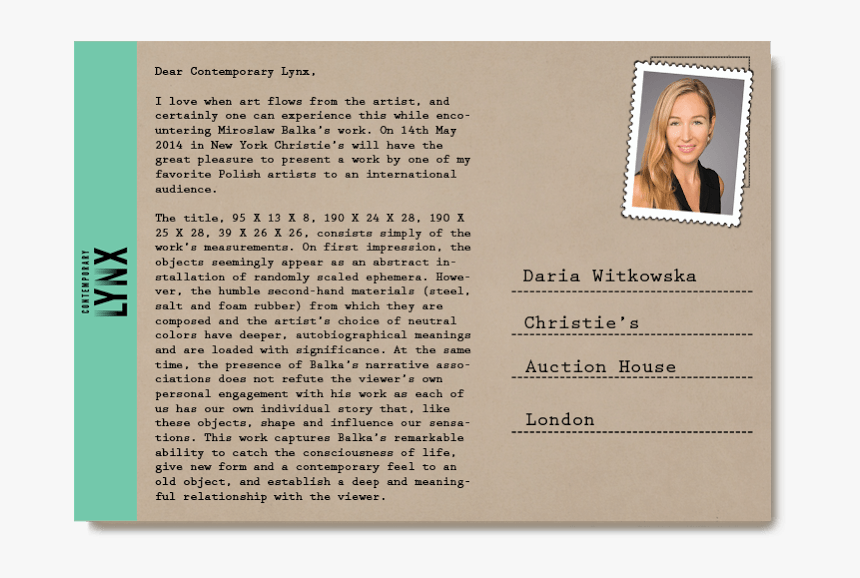 CONTEMPORARY
LYNX
Dear Contemporary Lynx,
I love when art flows from the artist, and
certainly one can experience this while enco-
untering Miroslaw Balka's work. On 14th May
2014 in New York Christie's will have the
great pleasure to present a work by one of my
favorite Polish artists to an international
audience.
The title, 95 X 13 X 8, 190 X 24 X 28, 190 X
25 X 28, 39 X 26 X 26, consists simply of the
work's measurements. On first impression, the
objects seemingly appear as an abstract in-
stallation of randomly scaled ephemera. Howe-
ver, the humble second-hand materials (steel,
salt and foam rubber) from which they are
composed and the artist's choice of neutral
colors have deeper, autobiographical meanings
and are loaded with significance. At the same
time, the presence of Balka's narrative asso-
ciations does not refute the viewer's own
personal engagement with his work as each of
us has our own individual story that, like
these objects, shape and influence our sensa-
tions. This work captures Balka's remarkable
ability to catch the consciousness of life,
give new form and a contemporary feel to an
old object, and establish a deep and meaning-
ful relationship with the viewer.
Daria Witkowska
Christie's
Auction House
London